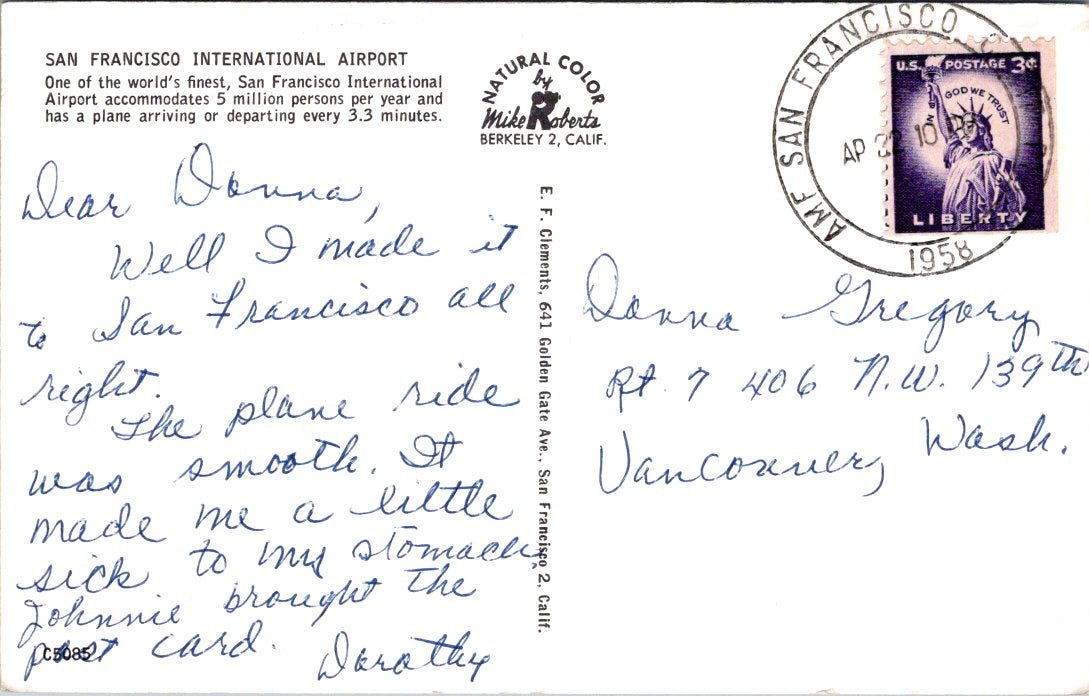 SAN FRANCISCO INTERNATIONAL AIRPORT
One of the world's finest, San Francisco International
Airport accommodates 5 million persons per year and
has a plane arriving or departing every 3.3 minutes.
NATURAL COLOR
by
Mike Roberts
BERKELEY 2, CALIF.
AMF SAN FRANCISCO
AP 10
1958
U.S. POSTAGE 3¢
IN GOD WE TRUST
LIBERTY
Dear Donna,
Well I made it
to San Francisco all
right.
The plane ride
was smooth. It
made me a little
sick to my stomach.
Johnnie brought the
post card.
Dorothy
C5085
E. F. Clements, 641 Golden Gate Ave., San Francisco 2, Calif.
Donna Gregory
Rt. 7 406 N.W. 139th
Vancouver, Wash.